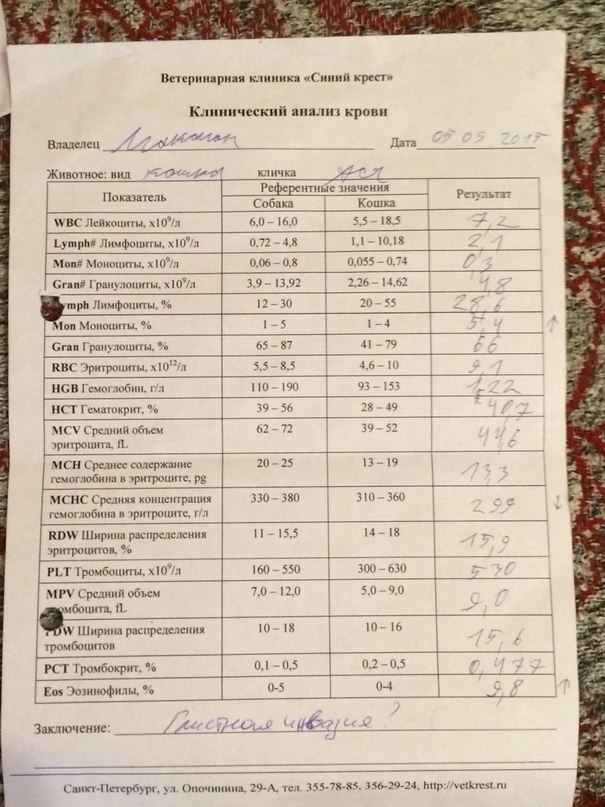 Ветеринарная клиника «Синий крест»
Клинический анализ крови
Владелец Дата 05 09 2015
Животное: вид кошка кличка Ася
Показатель Референтные значения Результат
Собака Кошка
WBC Лейкоциты, x10⁹/л 6,0 – 16,0 5,5 – 18,5 7,2
Lymph# Лимфоциты, x10⁹/л 0,72 – 4,8 1,1 – 10,18 2,1
Mon# Моноциты, x10⁹/л 0,06 – 0,8 0,055 – 0,74 0,3
Gran# Гранулоциты, x10⁹/л 3,9 – 13,92 2,26 – 14,62 4,8
ymph Лимфоциты, % 12 – 30 20 – 55 28,6
Mon Моноциты, % 1 – 5 1 – 4 5,4 ↑
Gran Гранулоциты, % 65 – 87 41 – 79 66
RBC Эритроциты, x10¹²/л 5,5 – 8,5 4,6 – 10 9,1
HGB Гемоглобин, г/л 110 – 190 93 – 153 122
HCT Гематокрит, % 39 – 56 28 – 49 40,7
MCV Средний объем 62 – 72 39 – 52 44,6
эритроцита, fL
MCH Среднее содержание 20 – 25 13 – 19 13,3
гемоглобина в эритроците, pg
MCHC Средняя концентрация 330 – 380 310 – 360 299 ↓
гемоглобина в эритроците, г/л
RDW Ширина распределения 11 – 15,5 14 – 18 15,9
эритроцитов, %
PLT Тромбоциты, x10⁹/л 160 – 550 300 – 630 530
MPV Средний объем 7,0 – 12,0 5,0 – 9,0 9,0
омбоцита, fL
PDW Ширина распределения 10 – 18 10 – 16 15,6
тромбоцитов
PCT Тромбокрит, % 0,1 – 0,5 0,2 – 0,5 0,477
Eos Эозинофилы, % 0-5 0-4 9,8 ↑
Заключение: Глистная инвазия?
Санкт-Петербург, ул. Опочинина, 29-А, тел. 355-78-85, 356-29-24, http://vetkrest.ru